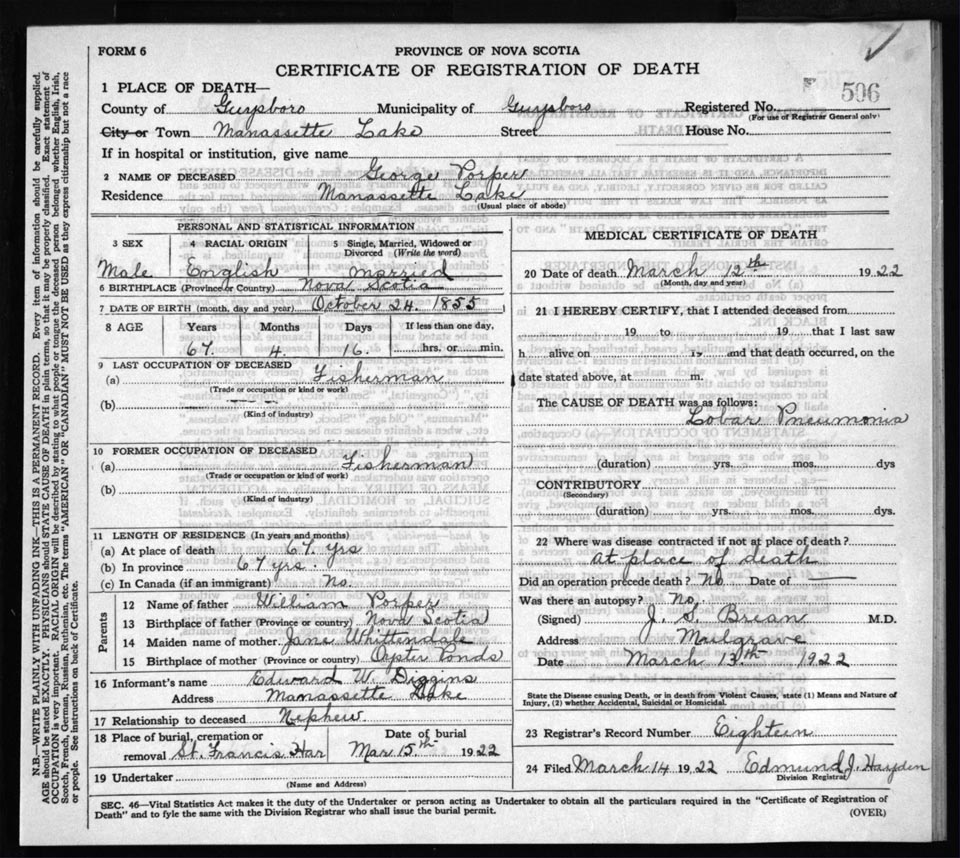 FORM 6
PROVINCE OF NOVA SCOTIA
CERTIFICATE OF REGISTRATION OF DEATH
506
1 PLACE OF DEATH—
County of Guysboro Municipality of Guysboro Registered No.
(For use of Registrar General only)
City or Town Manassette Lake Street House No.
If in hospital or institution, give name
2 NAME OF DECEASED George Porper
Residence Manassette Lake
(Usual place of abode)
PERSONAL AND STATISTICAL INFORMATION
3 SEX 4 RACIAL ORIGIN 5 Single, Married, Widowed or Divorced (Write the word)
Male English married
6 BIRTHPLACE (Province or Country) Nova Scotia
7 DATE OF BIRTH (month, day and year) October 24. 1855
8 AGE Years Months Days If less than one day,
67. 4. 16. hrs. or min.
9 LAST OCCUPATION OF DECEASED
(a) Fisherman
(Trade or occupation or kind of work)
(b)
(Kind of industry)
10 FORMER OCCUPATION OF DECEASED
(a) Fisherman
(Trade or occupation or kind of work)
(b)
(Kind of industry)
11 LENGTH OF RESIDENCE (In years and months)
(a) At place of death 67. yrs
(b) In province 67 yrs.
(c) In Canada (if an immigrant) No.
Parents
12 Name of father William Porper
13 Birthplace of father (Province or country) Nova Scotia
14 Maiden name of mother Jane Whittendale
15 Birthplace of mother (Province or country) Oyster Ponds
16 Informant's name Edward W. Diggins
Address Manassette Lake
17 Relationship to deceased Nephew.
18 Place of burial, cremation or removal St. Francis Har
Date of burial Mar 15th 1922
19 Undertaker
(Name and Address)
MEDICAL CERTIFICATE OF DEATH
20 Date of death March 12th 1922
(Month, day and year)
21 I HEREBY CERTIFY, that I attended deceased from
19 to 19 that I last saw
h alive on 19 and that death occurred, on the
date stated above, at m.
The CAUSE OF DEATH was as follows:
Lobar Pneumonia
(duration) yrs. mos. dys
CONTRIBUTORY
(Secondary)
(duration) yrs. mos. dys.
22 Where was disease contracted if not at place of death?
at place of death
Did an operation precede death? No Date of
Was there an autopsy? No.
(Signed) J. S. Brean M.D.
Address Mulgrave
Date March 13th 1922
State the Disease causing Death, or in death from Violent Causes, state (1) Means and Nature of
Injury, (2) whether Accidental, Suicidal or Homicidal.
23 Registrar's Record Number Eighteen
24 Filed March 14 1922 Edmund J. Hayden
Division Registrar
SEC. 46—Vital Statistics Act makes it the duty of the Undertaker or person acting as Undertaker to obtain all the particulars required in the "Certificate of Registration of
Death" and to fyle the same with the Division Registrar who shall issue the burial permit.
(OVER)
N.B.—WRITE PLAINLY WITH UNFADING INK—THIS IS A PERMANENT RECORD. Every item of information should be carefully supplied.
AGE should be stated EXACTLY. PHYSICIANS should STATE CAUSE OF DEATH in plain terms, so that it may be properly classified. Exact statement of
OCCUPATION is very important. RACIAL ORIGIN will be described by stating to what people or tongue the deceased person belonged whether English, Irish,
Scotch, French, German, Russian, Ruthenian, etc. The terms "AMERICAN" OR "CANADIAN" MUST NOT BE USED as they express citizenship but not a race
or people. See instructions on back of Certificate.